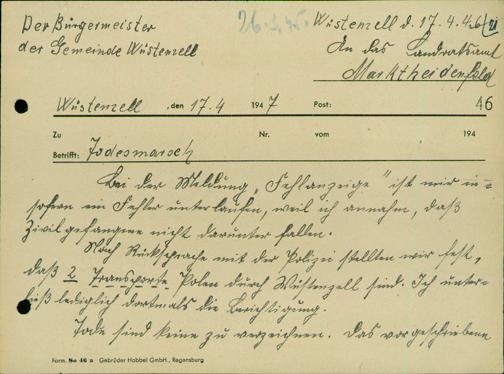 Der Bürgermeister
der Gemeinde Wüstenzell
26.3.45.
Wüstenzell d. 17.4.46
An das Landratsamt
Marktheidenfeld
Wüstenzell, den 17.4 1947 Post: 46
Zu Nr. vom 194
Betrifft: Todesmarsch
Bei der Meldung „Fehlanzeige" ist mir in-
sofern ein Fehler unterlaufen, weil ich annahm, daß
Zivilgefangene nicht darunter fallen.
Nach Rücksprache mit der Polizei stellten wir fest,
daß 2 Transporte Polen durch Wüstenzell sind. Ich unter-
ließ lediglich dortmals die Berichtigung.
Tode sind keine zu verzeichnen. Das vorgeschriebene
Form. No 46 a Gebrüder Habbel GmbH., Regensburg